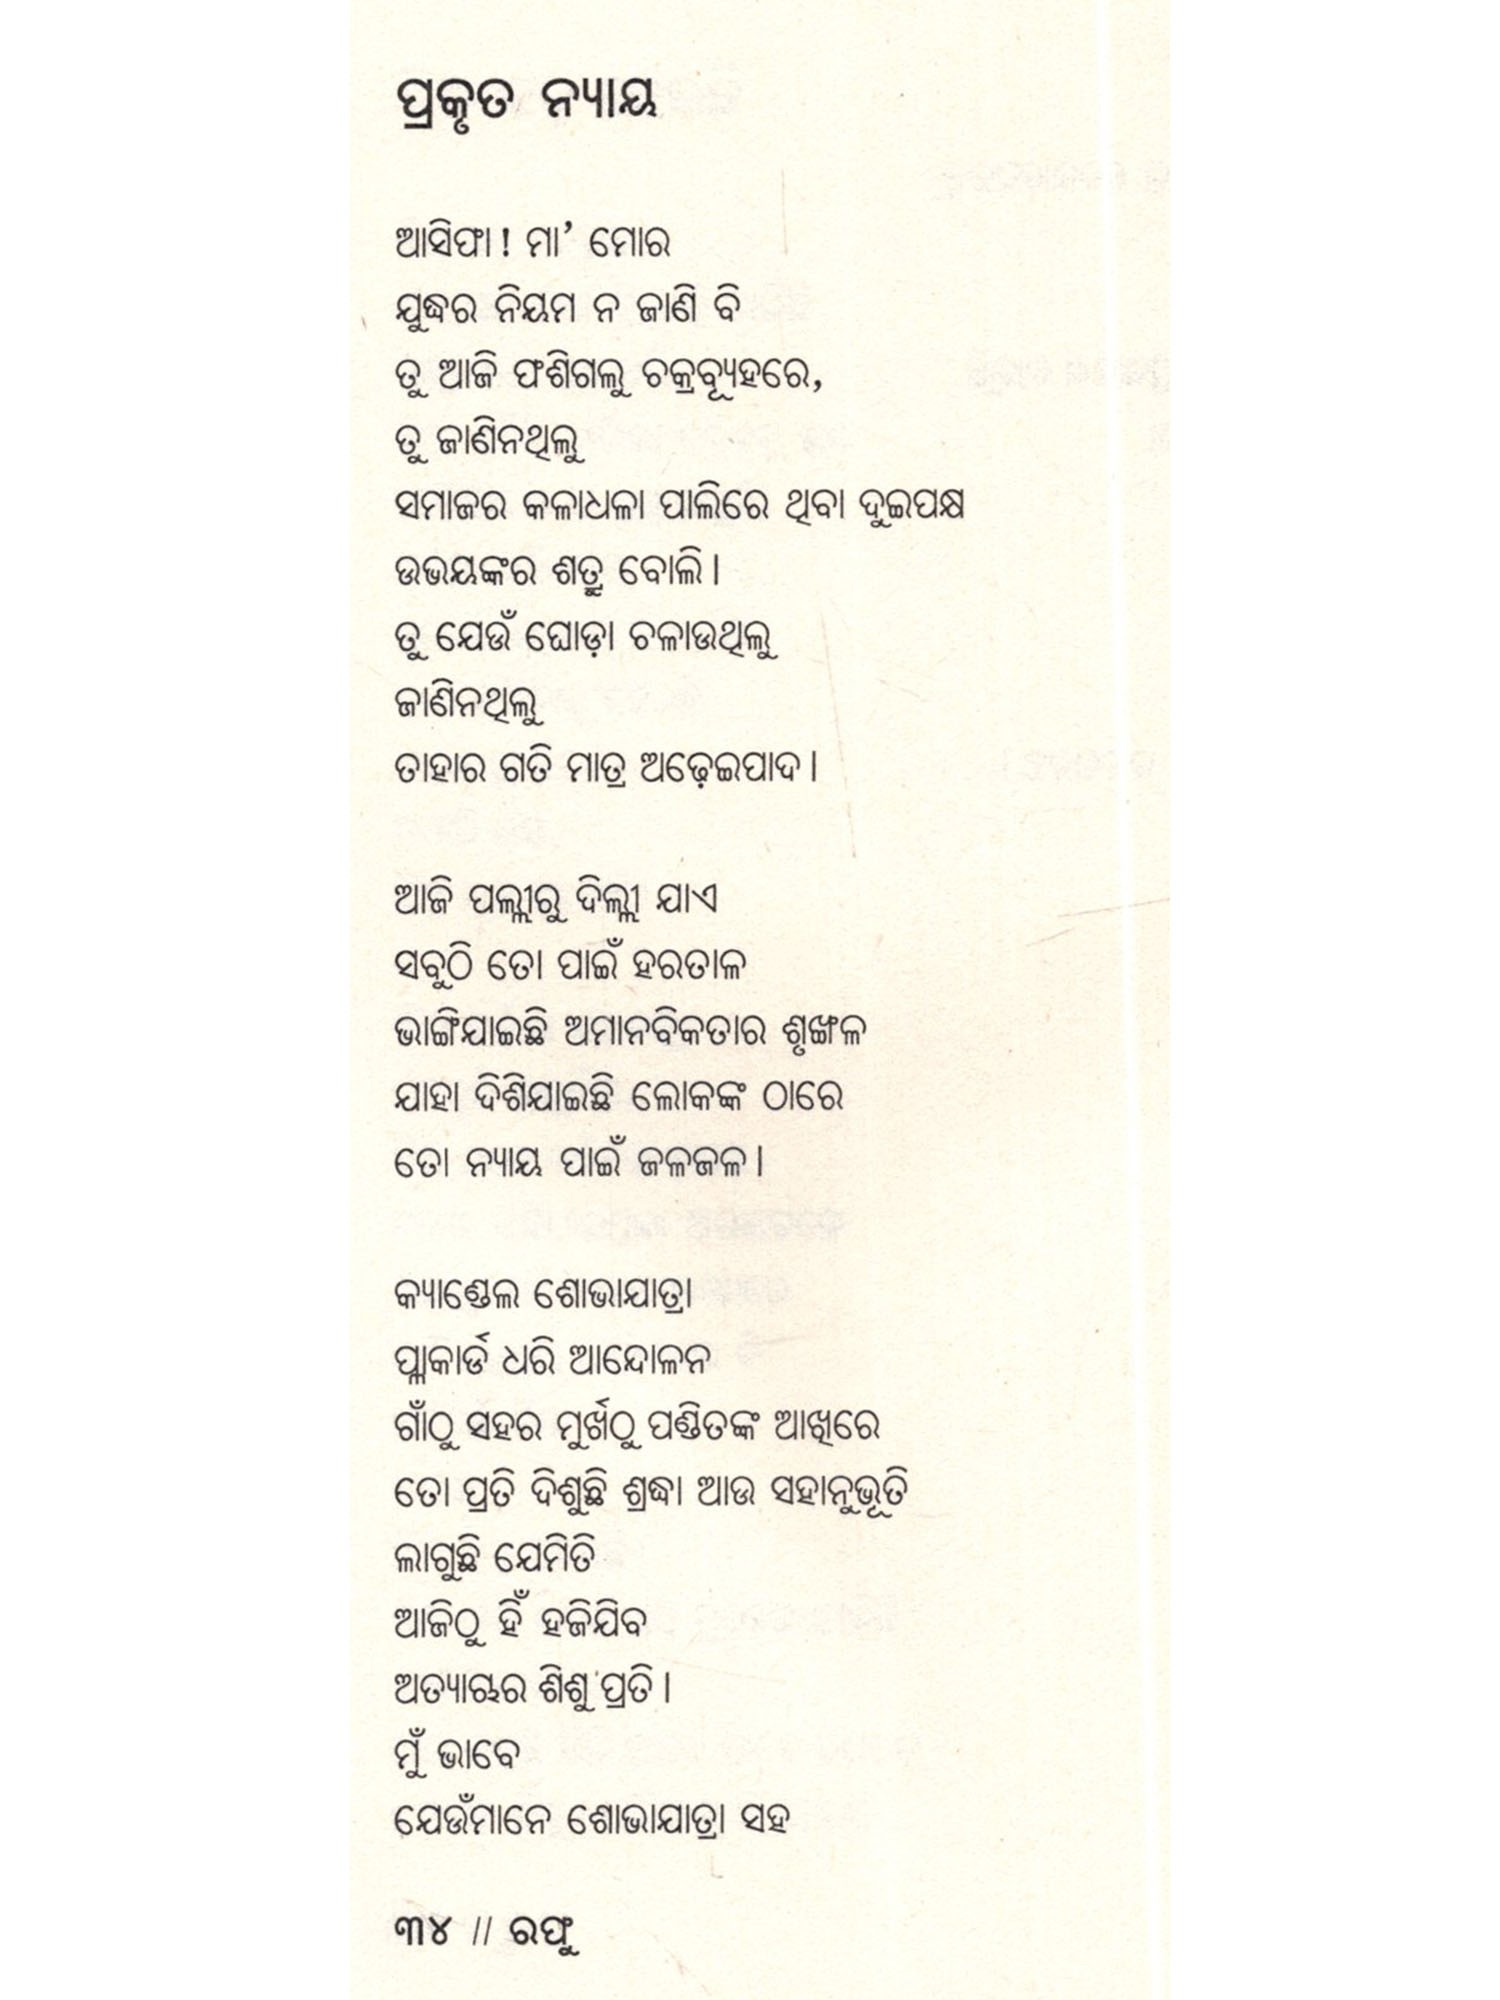 ପ୍ରକୃତ ନ୍ୟାୟ
ଆସିଫା! ମା’ ମୋର
ଯୁଦ୍ଧର ନିୟମ ନ ଜାଣି ବି
ତୁ ଆଜି ଫଶିଗଲୁ ଚକ୍ରବ୍ୟୂହରେ,
ତୁ ଜାଣିନଥିଲୁ
ସମାଜର କଳାଧଳା ପାଲିରେ ଥିବା ଦୁଇପକ୍ଷ
ଉଭୟଙ୍କର ଶତ୍ରୁ ବୋଲି।
ତୁ ଯେଉଁ ଘୋଡ଼ା ଚଳାଉଥିଲୁ
ଜାଣିନଥିଲୁ
ତାହାର ଗତି ମାତ୍ର ଅଢ଼େଇପାଦ।
ଆଜି ପଲ୍ଲୀରୁ ଦିଲ୍ଲୀ ଯାଏ
ସବୁଠି ତୋ ପାଇଁ ହରତାଳ
ଭାଙ୍ଗିଯାଇଛି ଅମାନବିକତାର ଶୃଙ୍ଖଳ
ଯାହା ଦିଶିଯାଇଛି ଲୋକଙ୍କ ଠାରେ
ତୋ ନ୍ୟାୟ ପାଇଁ ଜଳଜଳ।
କ୍ୟାଣ୍ଡେଲ ଶୋଭାଯାତ୍ରା
ପ୍ଲାକାର୍ଡ ଧରି ଆନ୍ଦୋଳନ
ଗାଁଠୁ ସହର ମୁର୍ଖଠୁ ପଣ୍ଡିତଙ୍କ ଆଖିରେ
ତୋ ପ୍ରତି ଦିଶୁଛି ଶ୍ରଦ୍ଧା ଆଉ ସହାନୁଭୂତି
ଲାଗୁଛି ଯେମିତି
ଆଜିଠୁ ହିଁ ହଜିଯିବ
ଅତ୍ୟାଚ୍ଚାର ଶିଶୁ ପ୍ରତି।
ମୁଁ ଭାବେ
ଯେଉଁମାନେ ଶୋଭାଯାତ୍ରା ସହ
୩୪ // ରଫୁ